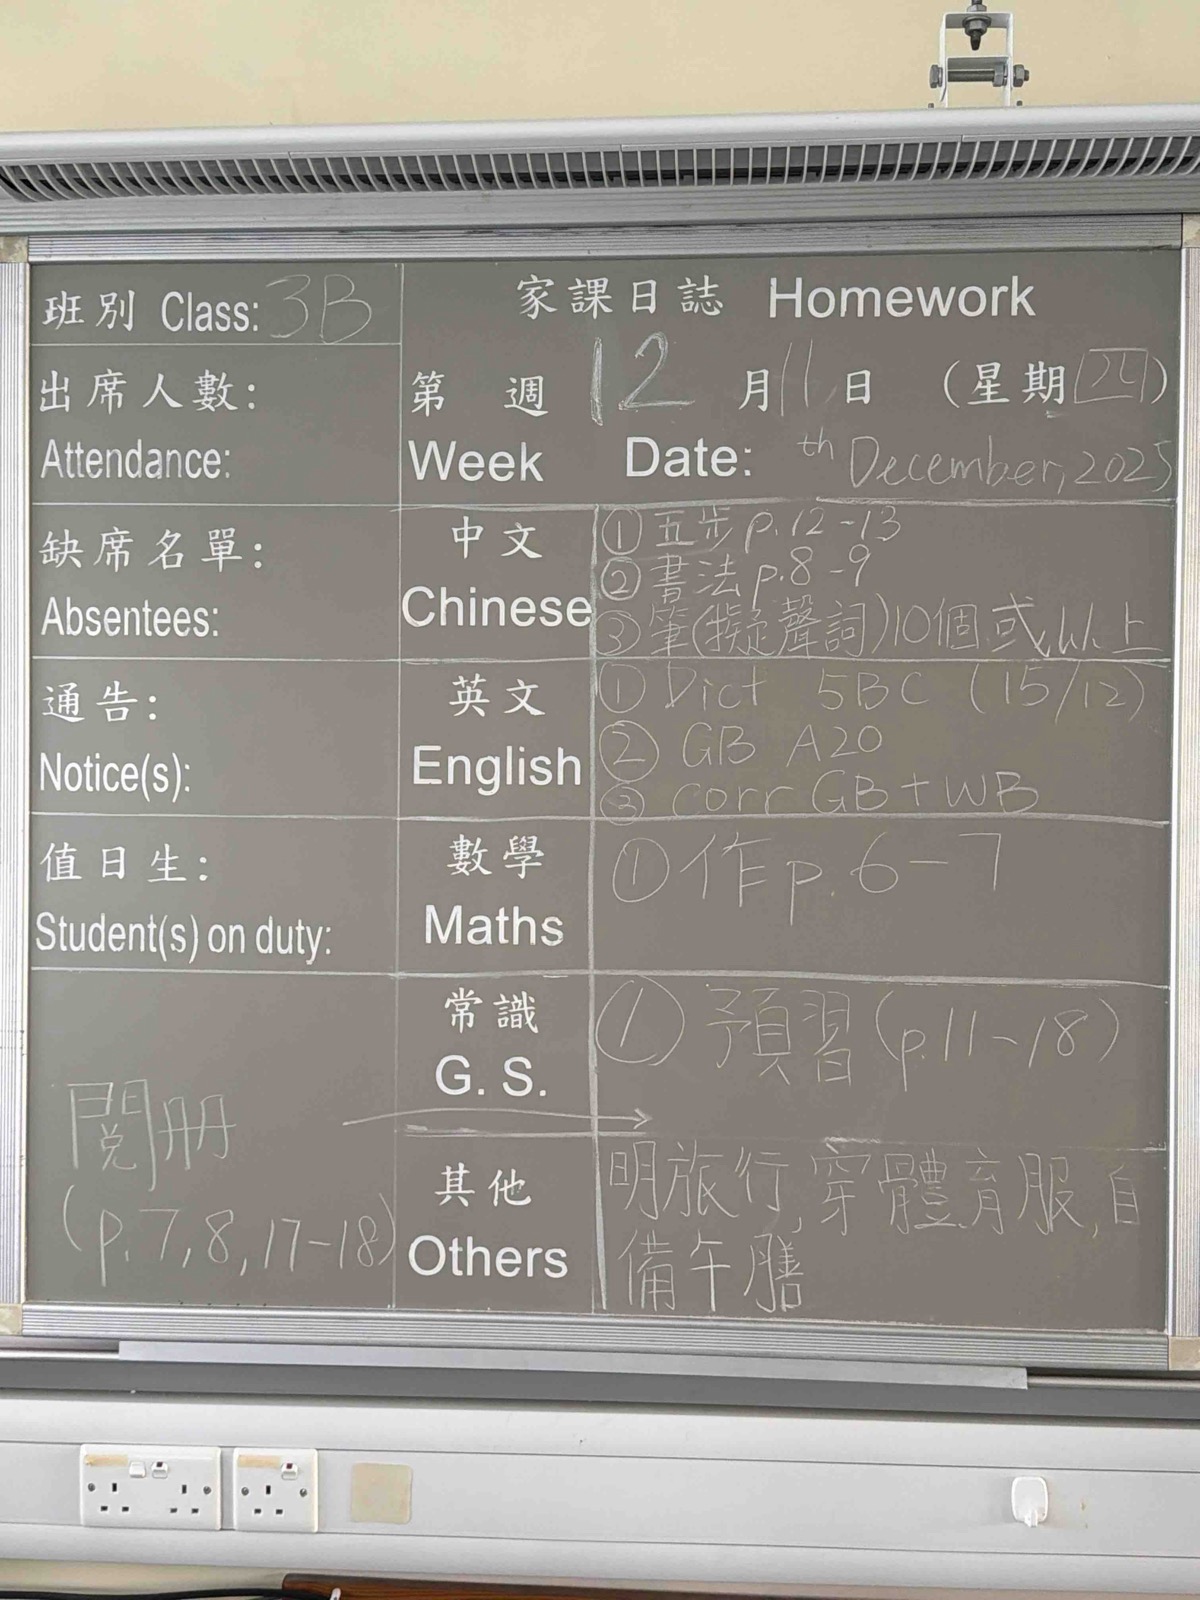 班別 Class: 3B
家課日誌 Homework
出席人數:
Attendance:
第 週 12 月 11 日 (星期四)
Week Date: th December, 2025
缺席名單:
Absentees:
中文
Chinese
① 五步 p.12-13
② 書法 p.8-9
③ 筆(擬聲詞)10個或以上
通告:
Notice(s):
英文
English
① Dict 5BC (15/12)
② GB A20
③ corr GB + WB
值日生:
Student(s) on duty:
數學
Maths
① 作 p.6-7
常識
G. S.
① 預習 (p.11-18)
閱冊
(p.7,8,17-18)
其他
Others
明旅行,穿體育服,自
備午膳